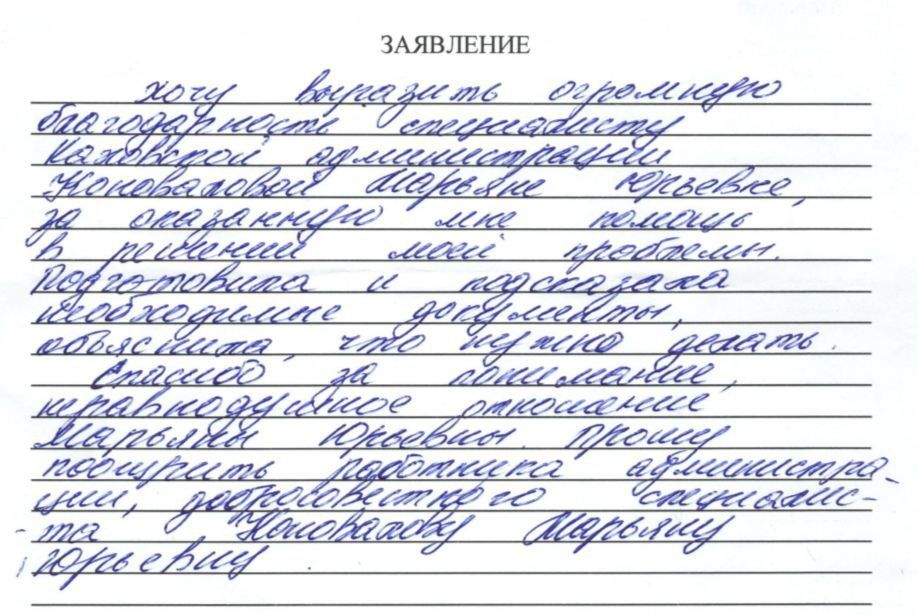 ЗАЯВЛЕНИЕ
Хочу выразить огромную
благодарность специалисту
Каховской администрации
Коноваловой Марьяне Юрьевне,
за оказанную мне помощь
в решении моей проблемы.
Подготовила и подсказала
необходимые документы,
объяснила, что нужно делать.
Спасибо за понимание,
неравнодушное отношение
Марьяны Юрьевны. Прошу
поощрить работника администра-
ции, добросовестного специалис-
та Коновалову Марьяну
Юрьевну.